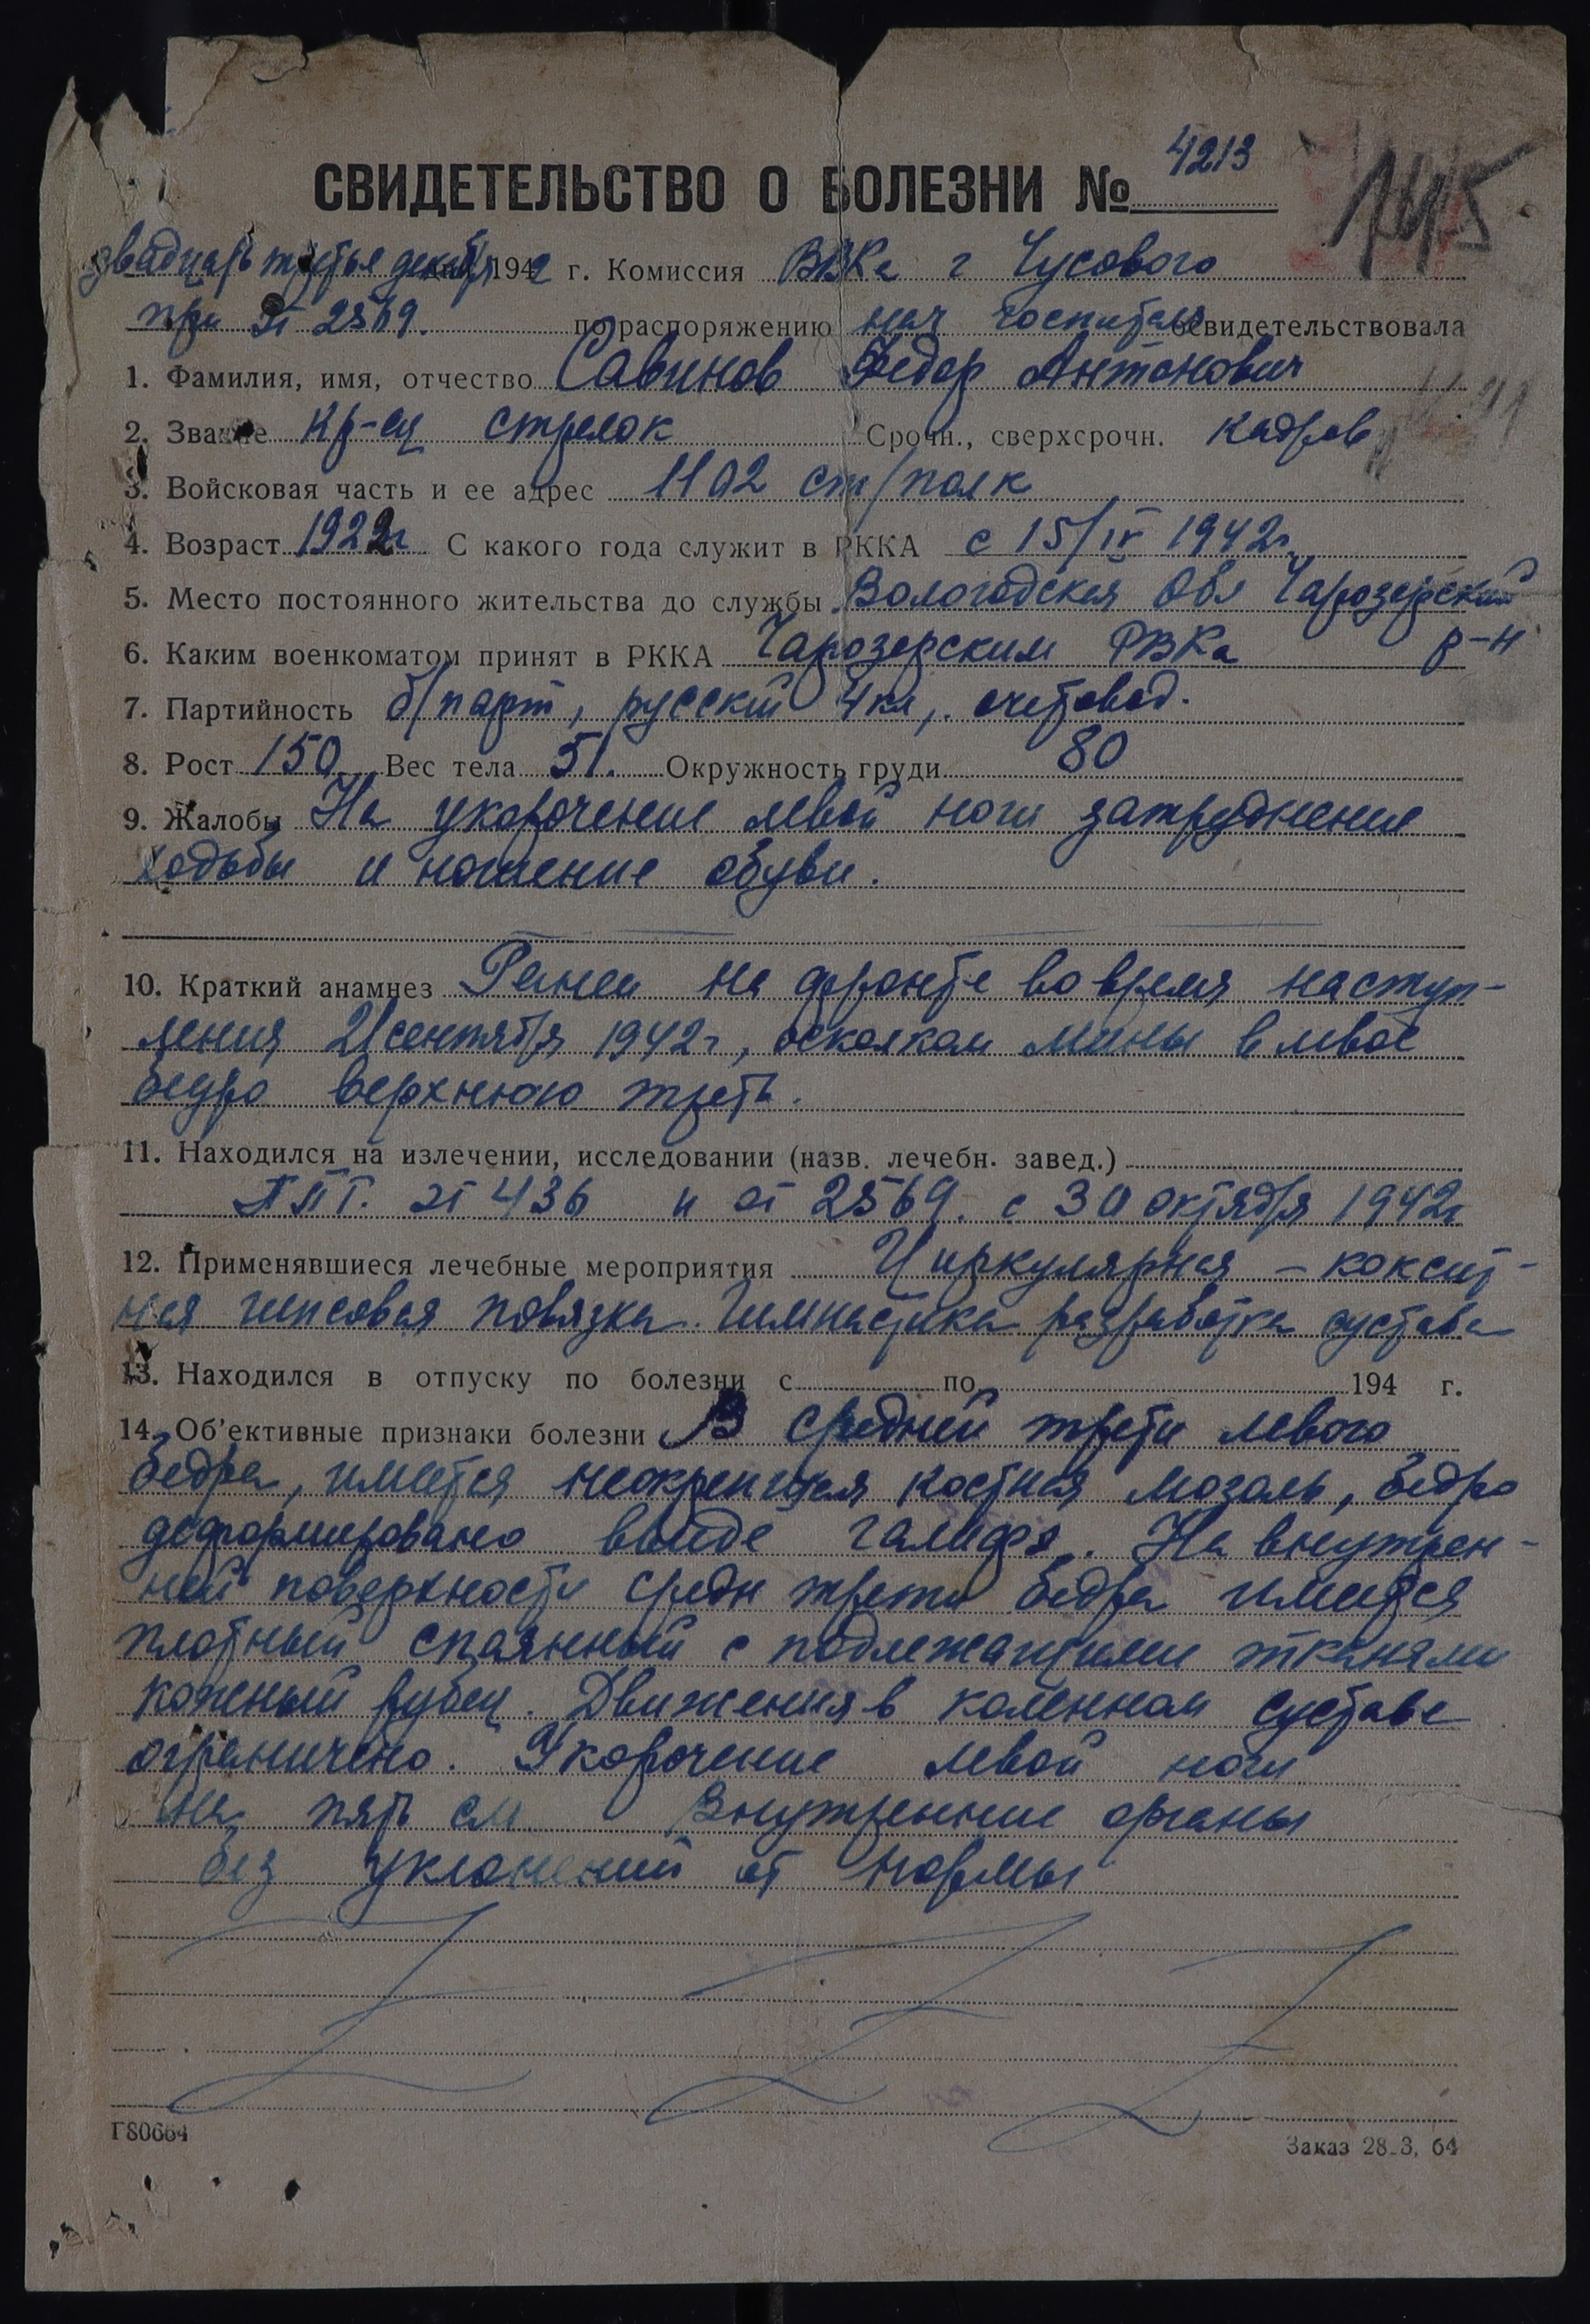 4213
СВИДЕТЕЛЬСТВО О БОЛЕЗНИ №
745
звадцать третья декабря дня 1942 г. Комиссия ВВКа г Чусового
при ЭГ 2569. по распоряжению нач госпиталя освидетельствовала
1. Фамилия, имя, отчество Савинов Федор Антонович
2. Звание Кр-ец стрелок Срочн., сверхсрочн. кадров
3. Войсковая часть и ее адрес 1102 стр/полк
4. Возраст 1922г С какого года служит в РККА с 15/IV 1942г.
5. Место постоянного жительства до службы Вологодская Обл Чарозерский
6. Каким военкоматом принят в РККА Чарозерским РВКа р-н
7. Партийность б/парт, русский 4кл, счетовод.
8. Рост 150 Вес тела 51. Окружность груди 80
9. Жалобы На укорочение левой ноги затруднение
ходьбы и ношение обуви.
10. Краткий анамнез Ранен на фронте во время наступ-
ления 21 сентября 1942г, осколком мины в левое
бедро верхнюю треть.
11. Находился на излечении, исследовании (назв. лечебн. завед.)
ППГ. ЭГ 436 и ЭГ 2569. с 30 октября 1942г
12. Применявшиеся лечебные мероприятия Циркулярная – коксит-
ная гипсовая повязка. Гимнастика разработка сустава
13. Находился в отпуску по болезни с по 194 г.
14. Об'ективные признаки болезни В средней трети левого
бедра, имеется неокрепшая костная мозоль, бедро
деформировано ввиде галифе. На внутрен-
ней поверхности средн трети бедра имеется
плотный спаянный с подлежащими тканями
кожный рубец. Движения в коленном суставе
ограничено. Укорочение левой ноги
на пять см. Внутренние органы
без уклонений от нормы
Г80664
Заказ 28-3, 64